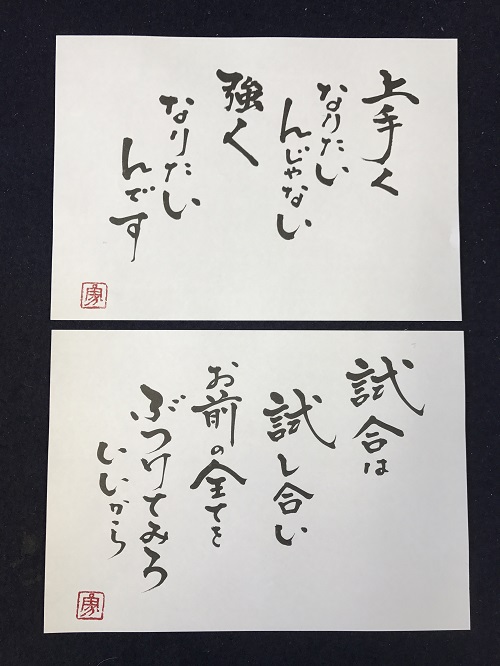 上手く
なりたい
んじゃない
強く
なりたい
んです
試合は
試し合い
お前の全てを
ぶつけてみろ
いいから